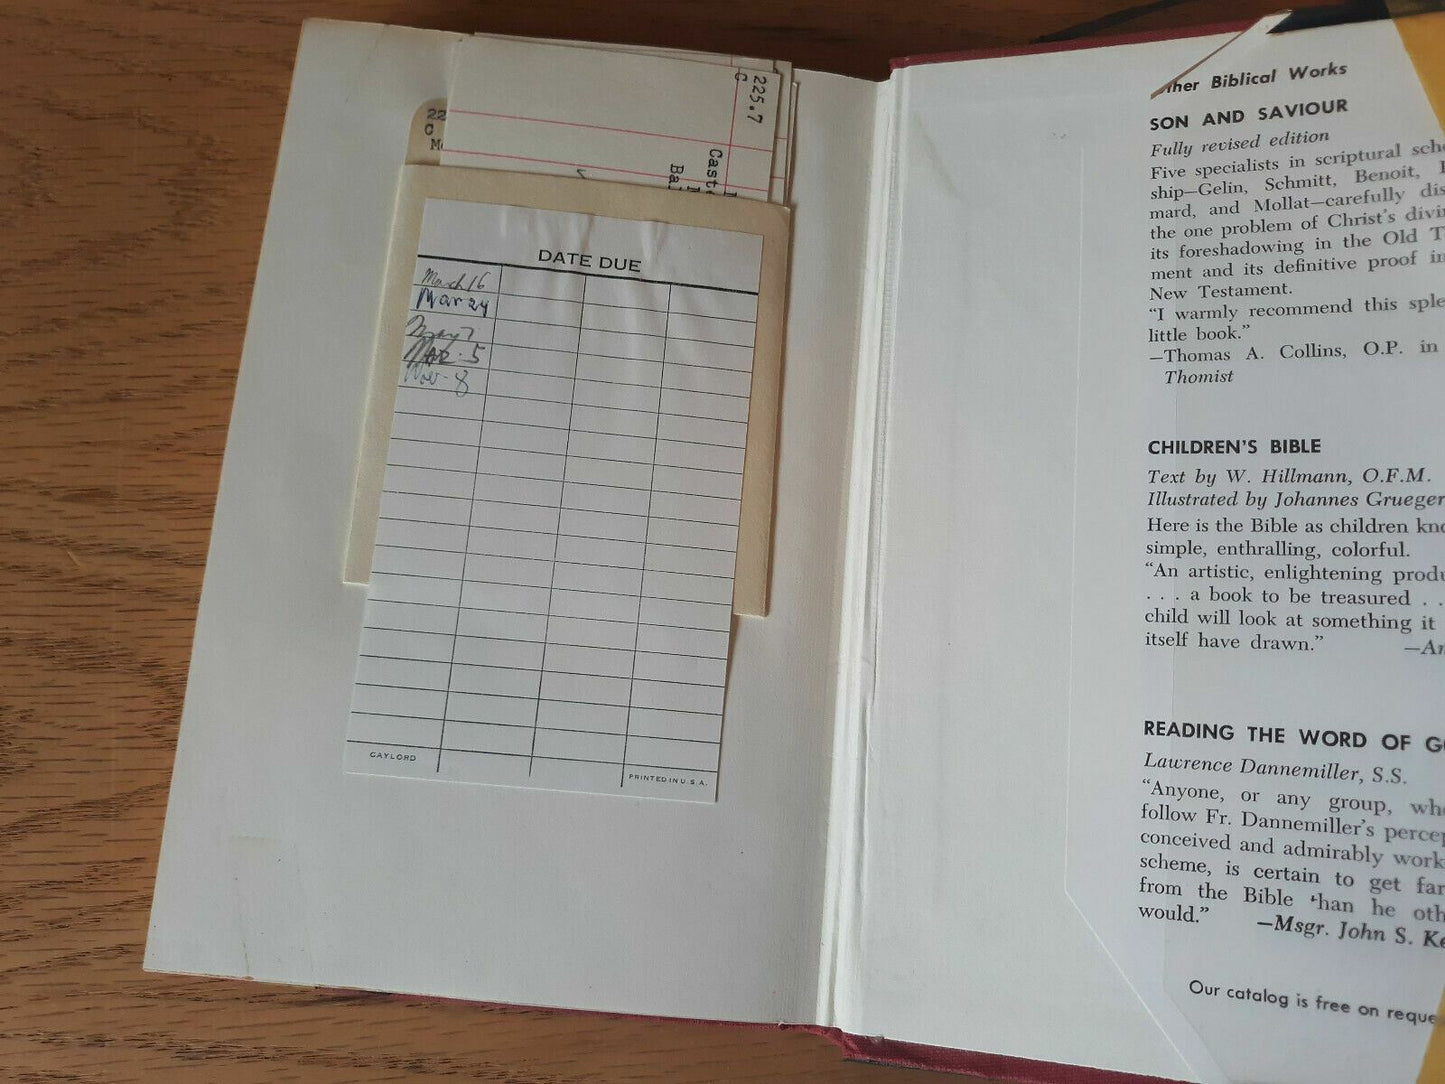 225.7
C
Cast
Ba
22
C
M
DATE DUE
March 16
Mar 24
May 7
Mar. 5
Nov - 8
GAYLORD
PRINTED IN U.S.A.
ther Biblical Works
SON AND SAVIOUR
Fully revised edition
Five specialists in scriptural scho
ship—Gelin, Schmitt, Benoit,
mard, and Mollat—carefully dis
the one problem of Christ's divin
its foreshadowing in the Old T
ment and its definitive proof in
New Testament.
“I warmly recommend this sple
little book.”
—Thomas A. Collins, O.P. in
Thomist
CHILDREN'S BIBLE
Text by W. Hillmann, O.F.M.
Illustrated by Johannes Grueger
Here is the Bible as children kno
simple, enthralling, colorful.
“An artistic, enlightening produ
. . . a book to be treasured . .
child will look at something it
itself have drawn.” —Am
READING THE WORD OF GO
Lawrence Dannemiller, S.S.
“Anyone, or any group, who
follow Fr. Dannemiller's percep
conceived and admirably work
scheme, is certain to get far
from the Bible than he oth
would.” —Msgr. John S. Ke
Our catalog is free on reque